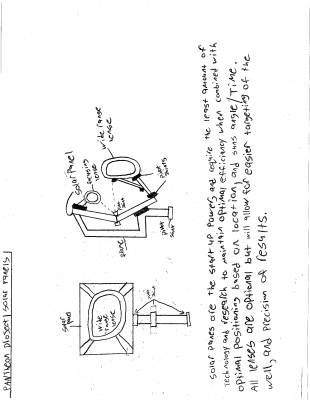 PANtheon project | solar panels |
solar panel
wide range lense
wide range lense
solar panel
lense
wide range lense
pivot points
Solar panes are the start up power, and require the least amount of
technology and research to maintain optimal efficiency when combined with
optimal positioning based on location, and suns angle/Time.
All lenses are optional but will allow for easier targeting of the
well, and precision of results.